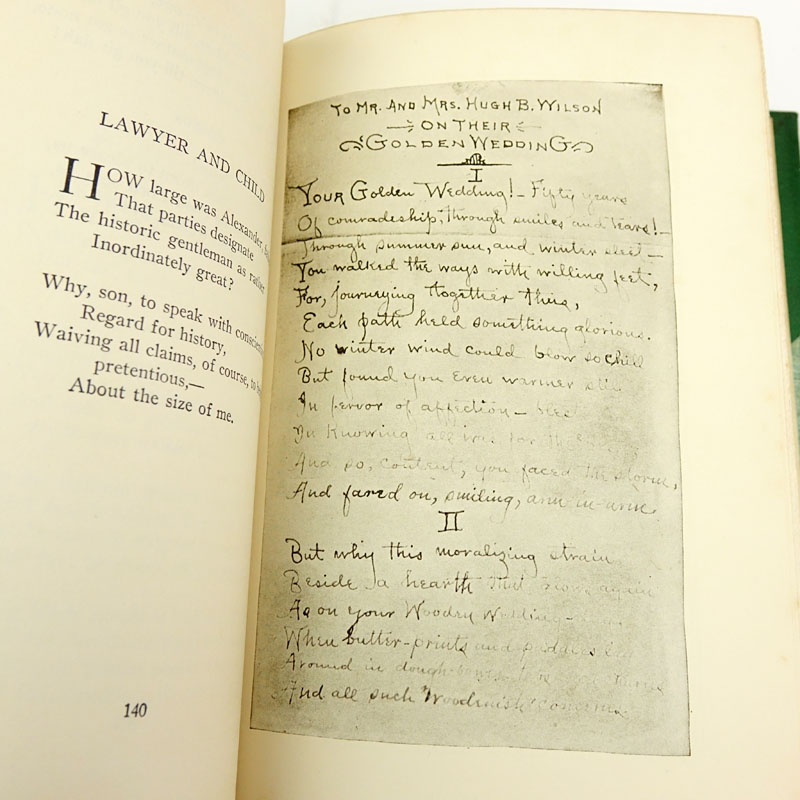 LAWYER AND CHILD
HOW large was Alexander,
That parties designate
The historic gentleman as rather
Inordinately great?
Why, son, to speak with
Regard for history,
Waiving all claims, of course, to
pretentious,—
About the size of me.
140
TO MR. AND MRS. HUGH B. WILSON
ON THEIR
GOLDEN WEDDING
I
Your Golden Wedding!— Fifty years
Of comradeship, through smiles and tears!—
Through summer sun, and winter sleet—
You walked the ways with willing feet,
For, journeying together thus,
Each path held something glorious.
No winter wind could blow so chill
But found you even warmer
In fervor of affection—
In knowing all was for the
And so, content, you faced the storm,
And fared on, smiling, arm-in-arm.
II
But why this moralizing strain
Beside a hearth that again
As on your Wooden Wedding—
When butter-prints and paddles
Around in
And all such "Woodenish" concerns